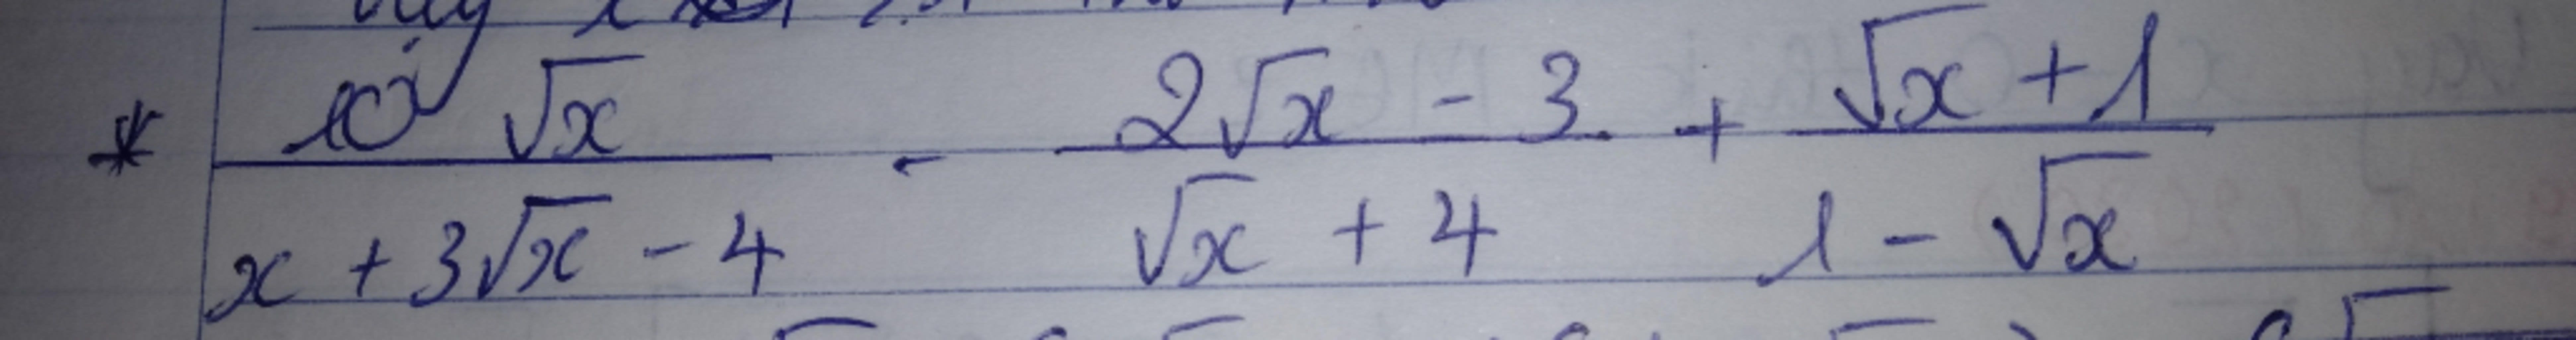 * 10√x / (x + 3√x - 4) - (2√x - 3) / (√x + 4) + (√x + 1) / (1 - √x)